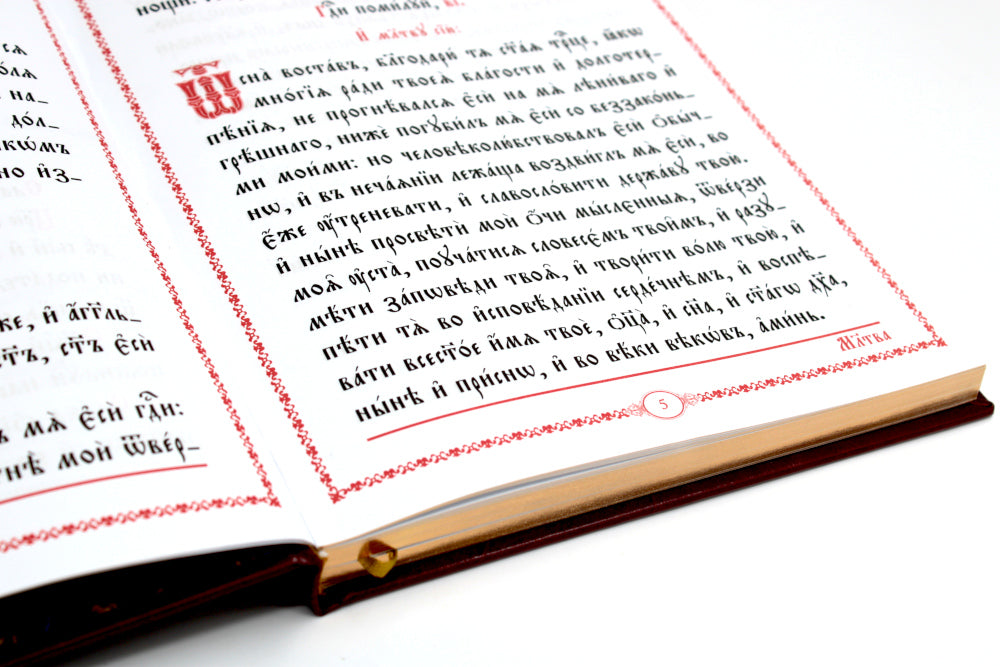 ся
но из_
же, и҆ а҆́гг҃ль_
ст҃ъ, ст҃ъ є҆сѝ
мѧ̀ є҆сѝ гд҇и:
мо́й ѿве́р_
Гд҇и поми́лꙋй, в҃і.
И҆ мл҃твꙋ сїю̀:
Ѿ сна̀ воста́въ, благодарю́ тѧ ст҃а́ѧ трⷪ҇це, ꙗ҆́кѡ
мно́гїѧ ра́ди твоеѧ̀ бл҃гости и҆ долготер_
пѣ́нїѧ, не прогнѣ́валсѧ є҆сѝ на мѧ̀ лѣни́ваго и҆
грѣ́шнаго, нижѐ погꙋби́лъ мѧ̀ є҆сѝ со беззако́нь_
ми мои́ми: но человѣколю́бствовалъ є҆сѝ ѻ҆бы́ч_
нѡ, и҆ въ неча́ѧнїи лежа́ща воздви́глъ мѧ̀ є҆сѝ, во
є҆́же ᲂу҆́треневати, и҆ славосло́вити держа́вꙋ твою̀.
И҆ ны́нѣ просвѣтѝ моѝ ѻ҆́чи мы́слєнныѧ, ѿве́рзи
моѧ҄ ᲂу҆ста̀, поꙋча́тисѧ словесє́мъ твои҄мъ, и҆ разꙋ_
мѣ́ти за́пѡвѣди твоѧ҄, и҆ твори́ти во́лю твою̀, и҆
пѣ́ти тѧ̀ во и҆сповѣ́данїи серде́чнѣмъ, и҆ воспѣ_
ва́ти всест҃о́е и҆́мѧ твоѐ, ѻ҆ц҃а̀, и҆ сн҃а, и҆ ст҃а́гѡ дх҃а,
ны́нѣ и҆ при́снѡ, и҆ во вѣ́ки вѣкѡ́въ, а҆ми́нь.
Мл҃тва
5